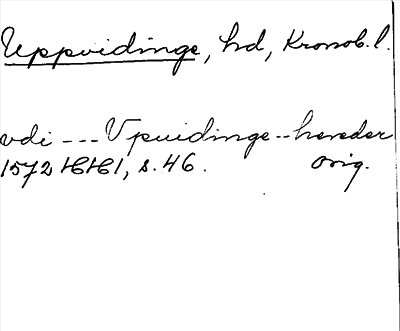 Uppvidinge, hd, Kronob. l.
vdi --- Vpuidinge -- hereder
1572 HH1, s. 46. orig.